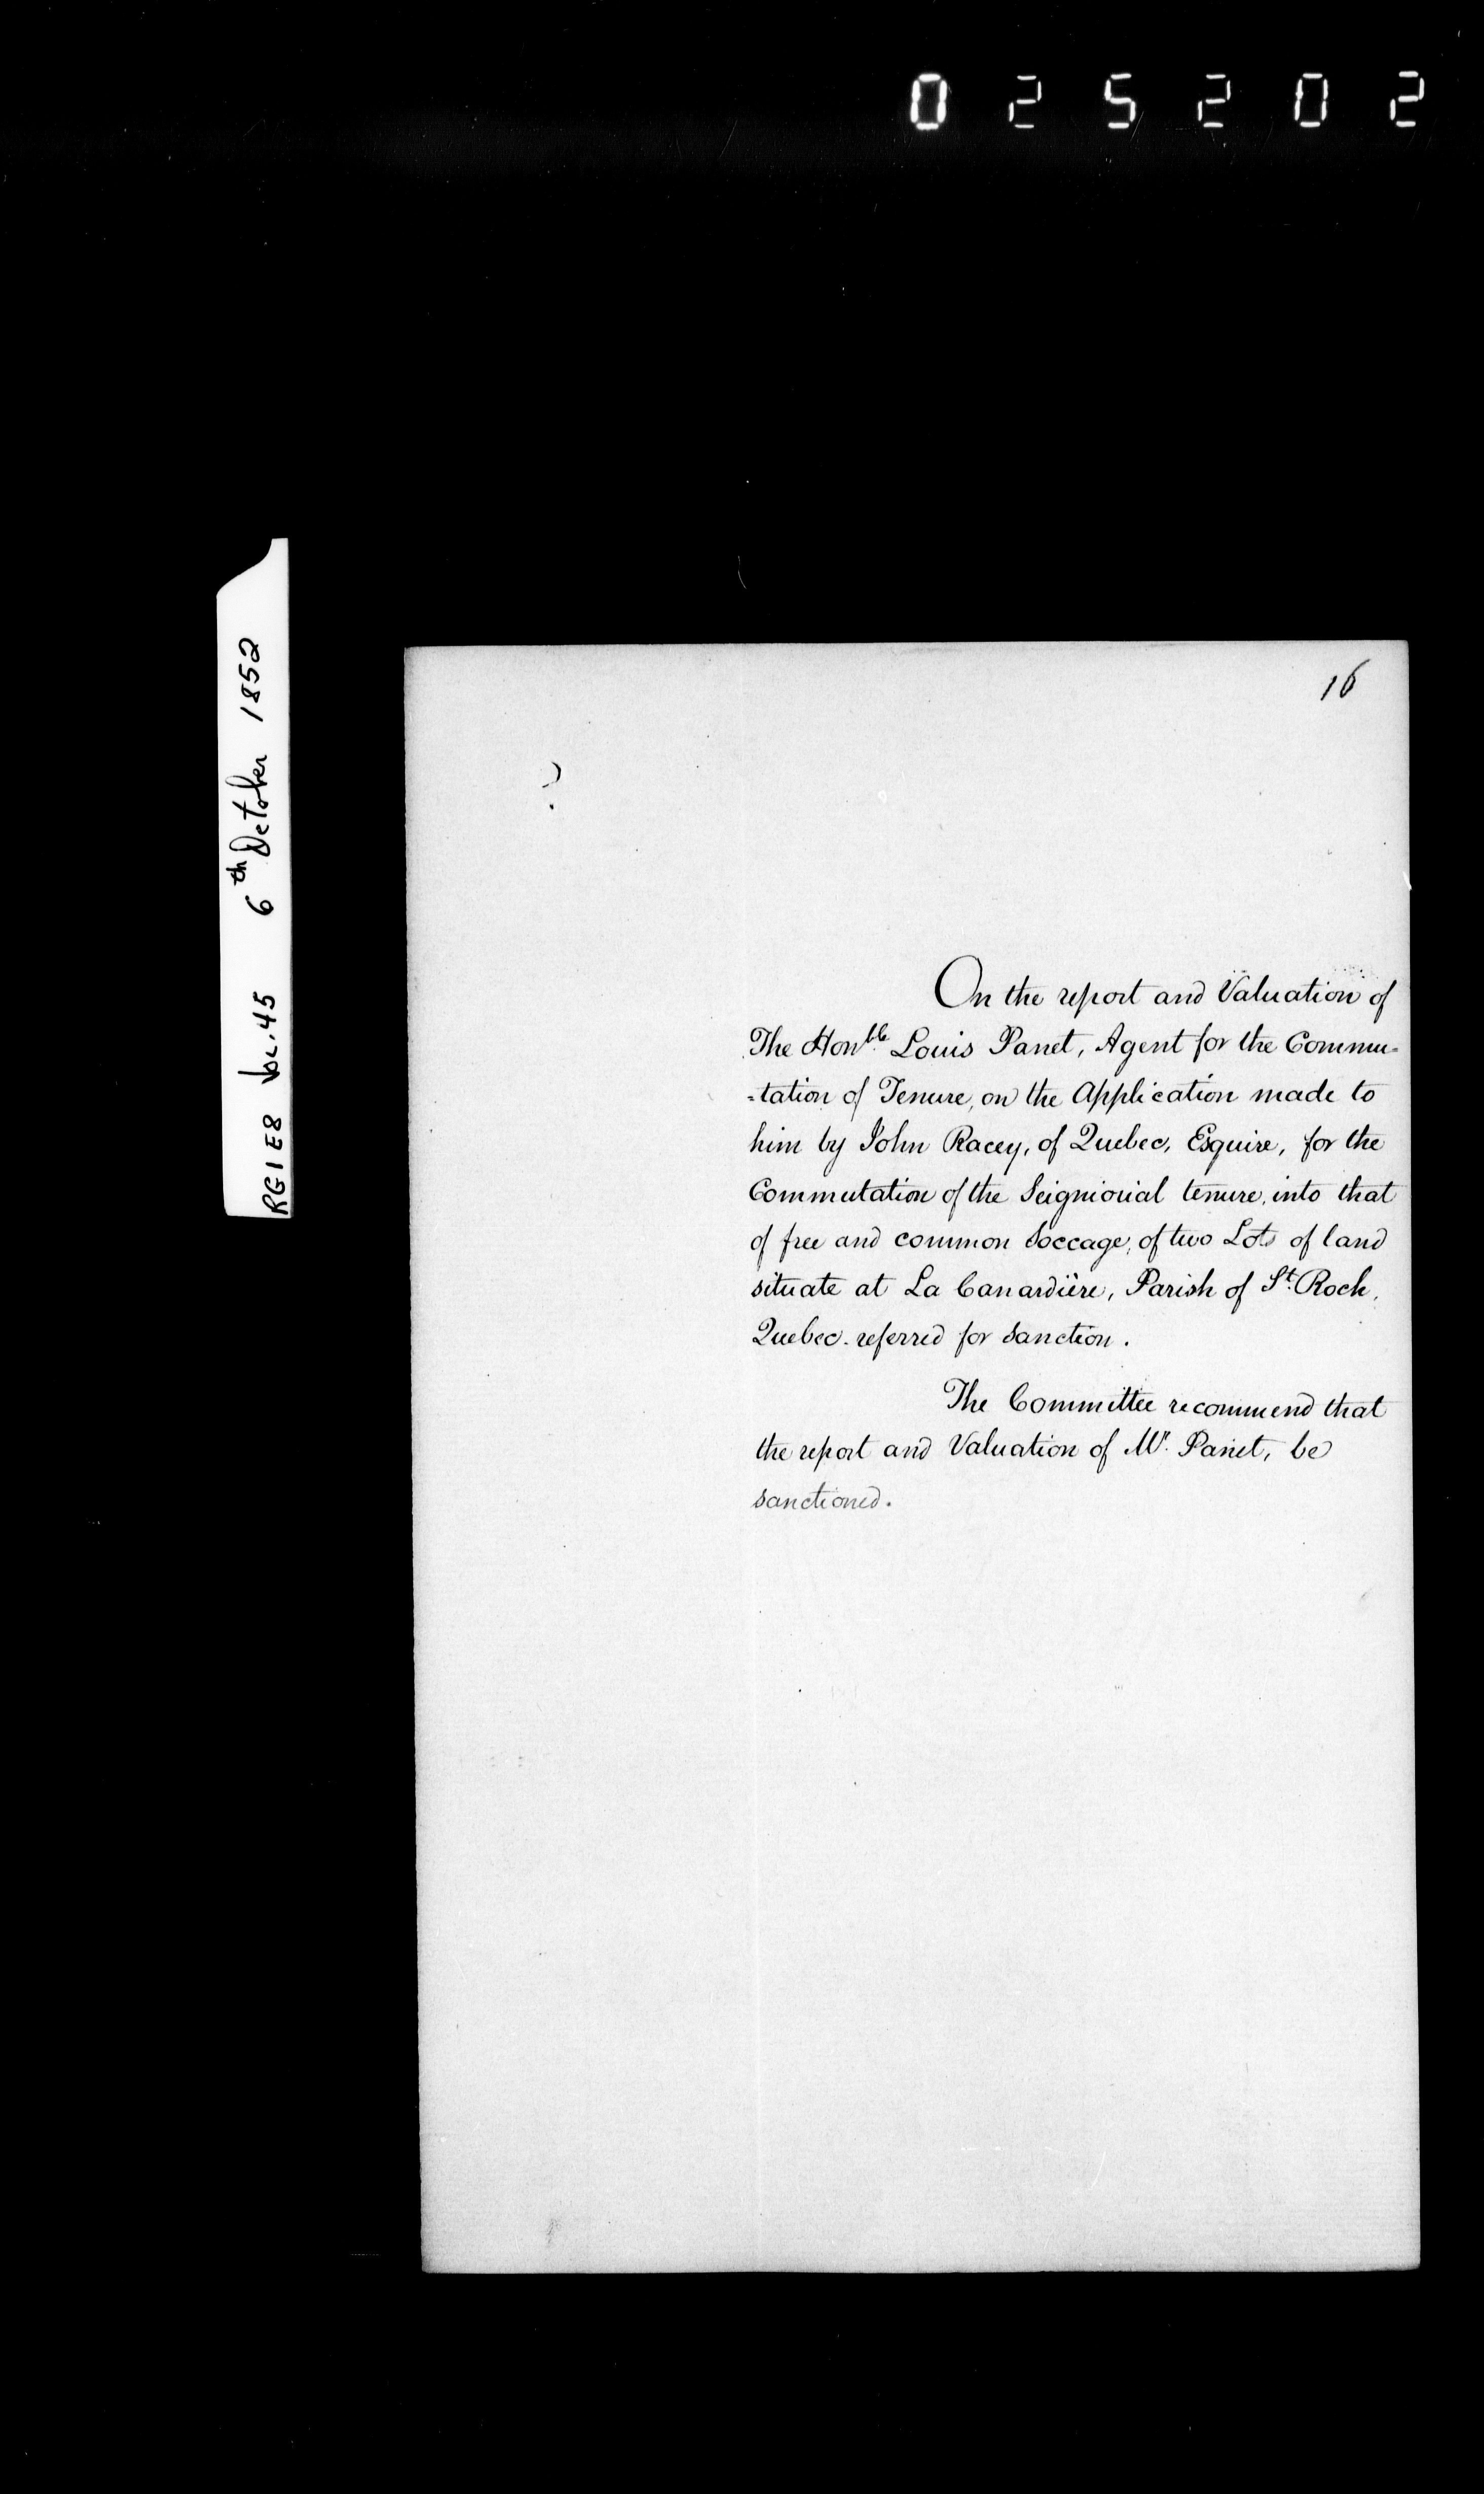 025202
RG1E8 VOL.45 6th October 1852
16
?
On the report and Valuation of
The Honble. Louis Panet, Agent for the Commu-
-tation of Tenure, on the Application made to
him by John Racey, of Quebec, Esquire, for the
Commutation of the Seigniorial tenure, into that
of free and common Soccage, of two Lots of land
situate at La Canardière, Parish of St. Roch,
Quebec. referred for sanction.
The Committee recommend that
the report and Valuation of Mr. Panet, be
sanctioned.